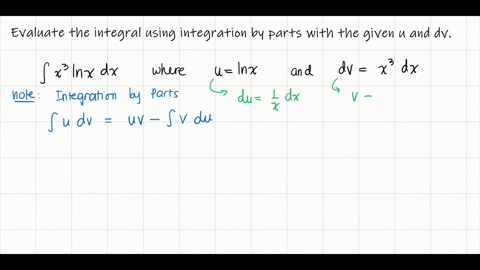 Evaluate the integral using integration by parts with the given u and dv.
∫ x³ lnx dx where u = lnx and dv = x³ dx
note: Integration by Parts du = 1/x dx v –
∫ u dv = uv – ∫ v du